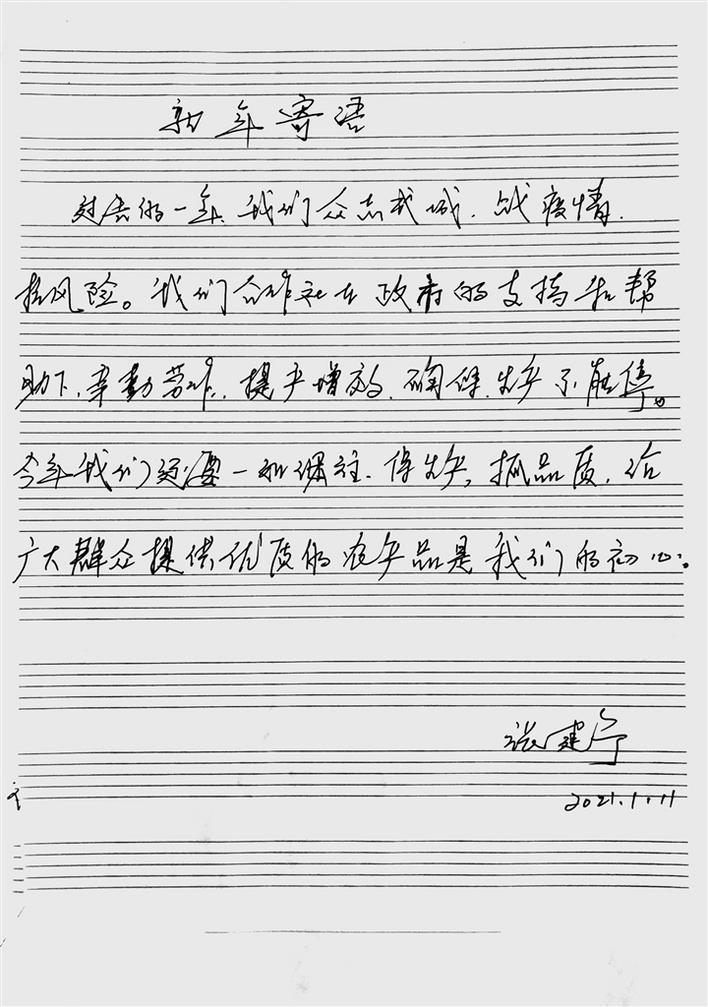 新年寄语
过去的一年、我们众志成城、战疫情、
抗风险。我们合作社在政府的支持和帮
助下、辛勤劳作、提产增效、确保生产不能停。
今年我们还要一如继往、保生产、抓品质、给
广大群众提供优质的农产品是我们的初心。
张建
2021.1.11